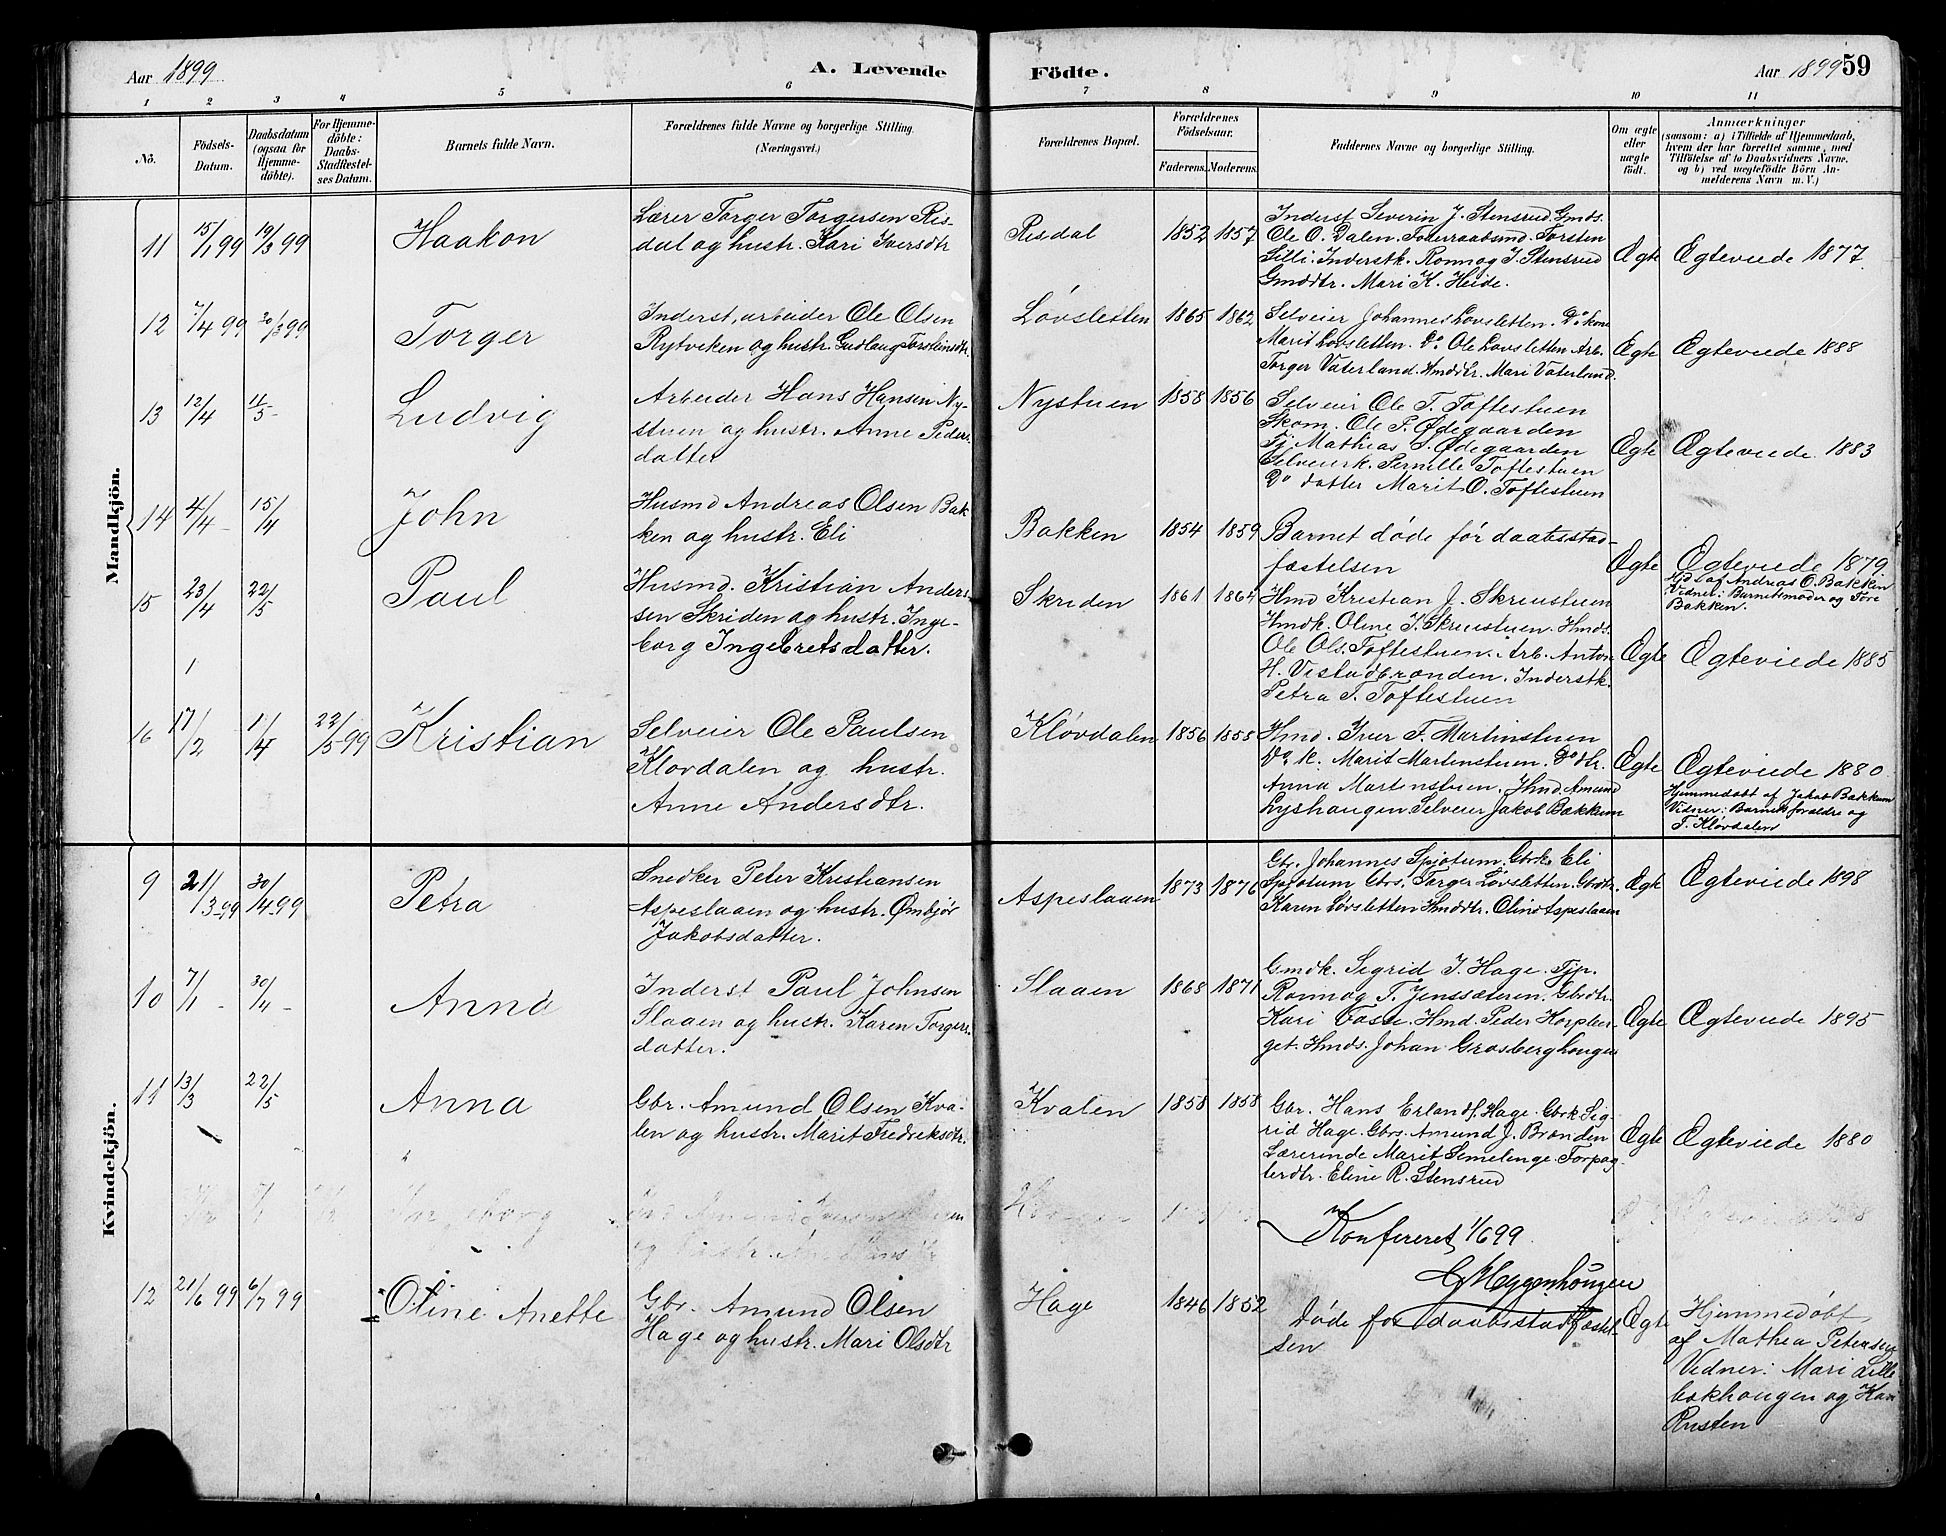 Aar 1899
A. Levende
Födte.
Aar 1899
59
1 2 3 4 5 6 7 8 9 10 11
No.
Födsels-
Datum.
Daabsdatum
(ogsaa for
Hjemme-
döbte).
For Hjemme-
döbte:
Daabs-
Stadfæstel-
ses Datum.
Barnets fulde Navn.
Forældrenes fulde Navne og borgerlige Stilling.
(Næringsvei.)
Forældrenes Bopæl.
Forældrenes
Födselsaar.
Faderens. Moderens.
Faddernes Navne og borgerlige Stilling.
Om ægte
eller
uægte
födt.
Anmærkninger
(saasom: a) i Tilfælde af Hjemmedaab,
hvem der har forrettet samme, med
Tilföielse af to Daabsvidners Navne,
og b) ved uegtefödte Börn An-
melderens Navn m. V.)
Mandkjön.
11 15/1 99 19/3 99 Haakon
Lærer Torger Torgersen Ris-
dal og hustr. Kari Iversdtr
Risdal 1852 1857
Inderst Severin J. Stensrud. Gmds.
Ole O. Dalen. Foderraadsmd. Torsten
Gilli. Inderstk. Ronnog J. Stensrud
Gmddtr. Mari K. Heide.
Ægte Ægteviede 1877.
12 7/4 99 30/3 99 Torger
Inderst, arbeider Ole Olsen
Rytviken og hustr. Gudlaug Torsteinsdtr.
Løvsletten 1865 1862
Selveier Johannes Lovsletten. Do kone
Marit Lovsletten. Do Ole Lovsletten Arb.
Torger Vaterland. Hmddtr. Mari Vaterland.
Ægte Ægteviede 1888
13 12/4 11/5 Ludvig
Arbeider Hans Hansen Ny-
stuen og hustr. Anne Peders-
datter
Nystuen 1858 1856
Selveier Ole T. Toftestuen
Skom. Ole P. Ødegaarden
Tj. Mathias S. Ødegaarden
Selveierk. Pernille Toftestuen
Do datter Marit O. Toftestuen
Ægte Ægteviede 1883
14 4/4 - 15/4 John
Husmd Andreas Olsen Bak-
ken og hustr. Eli
Bakken 1854 1859
Barnet døde før daabsstad-
fæstelsen
Ægte Ægteviede 1879
Hjd. af Andreas O. Bakken
Vidner: Barnets moder og Tore
Bakken.
15 23/4 22/5 Paul
Husmd. Kristian Anders-
sen Skriden og hustr. Inge-
borg Ingebretsdatter.
Skriden 1861 1864
Hmd Kristian J. Skrenstuen
Hmdk. Oline J. Skrenstuen. Hmds.
Ole Ols. Toftestuen. Arb. Anton
H. Vistadbranden. Inderstk.
Petra T. Toftestuen
Ægte Ægteviede 1885
16 17/2 1/4 22/5 99 Kristian
Selveier Ole Paulsen
Klovdalen og hustr.
Anne Andersdtr.
Kløvdalen 1856 1858
Hmd. Iver T. Martinstuen
Do K. Marit Martinstuen. Do dtr.
Anna Martinstuen. Hmd Amund
Lyshaugen Selveier Jakob Bakkum
Ægte Ægteviede 1880
Hjemmedøbt af Jakob Bakkum
Vidner: Barnets forældre og
T. Kløvdalen
Kvindekjön.
9 21/3 99 30/4 99 Petra
Snedker Peter Kristiansen
Aspeslaaen og hustr. Ømbjør
Jakobsdatter.
Aspeslaaen 1873 1876
Gbr. Johannes Spjotum. Gbrk. Eli
Spjotum Gbrs. Torger Løvsletten. Gbrdtr.
Karen Løvsletten Hmddtr. Olina Aspeslaaen
Ægte Ægteviede 1898
10 7/1 - 30/4 - Anna
Inderst Paul Johnsen
Slaaen og hustr. Karen Torgers-
datter.
Slaaen 1868 1871
Gmdk. Sigrid J. Hage. Tjp.
Ronnog T. Jenssæteren. Gbrdtr.
Kari Fosse. Hmd. Peder Korpber-
get. Hmds. Johan Grasberghougen
Ægte Ægteviede 1895
11 13/3 22/5 Anna
Gbr. Amund Olsen Kva-
len og hustr. Marit Fredriksdtr.
Kvalen 1858 1858
Gbr. Hans Erlands. Hage. Gbrk Sig-
rid Hage. Gbrs. Amund J. Branden
Lærerinde Marit Semelenge. Forpag-
terdtr. Eline R. Stensrud
Ægte Ægteviede 1880
Konfereret 1/6 99
G Heggenhougen
12 21/6 99 6/7 99 Oline Anette
Gbr. Amund Olsen
Hage og hustr. Mari Olsdtr
Hage 1846 1852
Døde før daabsstadfæstel-
sen
Ægte Hjemmedøbt
af Mathea Petersen
Vidner: Mari Lille-
bakhaugen og Kari
Rusten